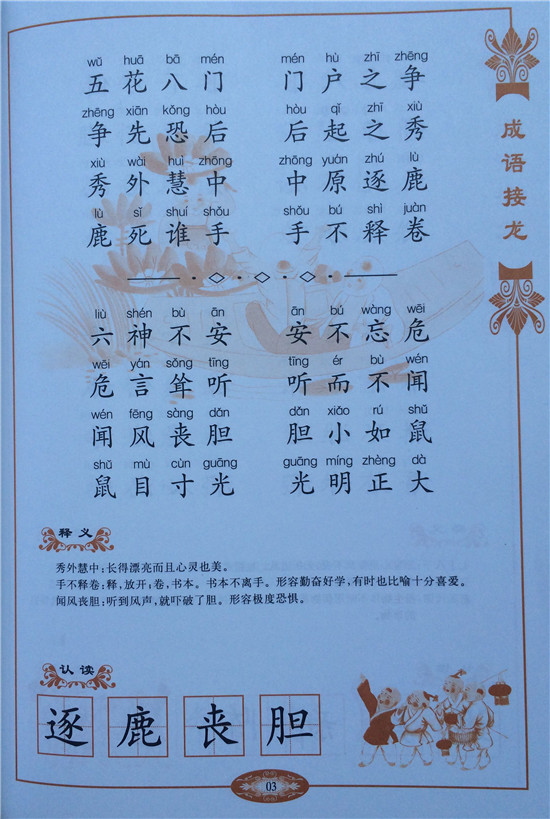 成语接龙
wǔ huā bā mén mén hù zhī zhēng
五花八门 门户之争
zhēng xiān kǒng hòu hòu qǐ zhī xiù
争先恐后 后起之秀
xiù wài huì zhōng zhōng yuán zhú lù
秀外慧中 中原逐鹿
lù sǐ shuí shǒu shǒu bú shì juàn
鹿死谁手 手不释卷
liù shén bù ān ān bú wàng wēi
六神不安 安不忘危
wēi yán sǒng tīng tīng ér bù wén
危言耸听 听而不闻
wén fēng sàng dǎn dǎn xiǎo rú shǔ
闻风丧胆 胆小如鼠
shǔ mù cùn guāng guāng míng zhèng dà
鼠目寸光 光明正大
释义
秀外慧中:长得漂亮而且心灵也美。
手不释卷:释,放开;卷,书本。书本不离手。形容勤奋好学,有时也比喻十分喜爱。
闻风丧胆:听到风声,就吓破了胆。形容极度恐惧。
认读
逐 鹿 丧 胆
03